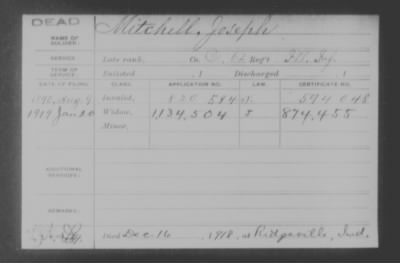 DEAD
NAME OF SOLDIER: Mitchell, Joseph
SERVICE: Late rank, Co. D, 62 Reg't Ill. Inf.
TERM OF SERVICE: Enlisted , 1 Discharged , 1
DATE OF FILING. CLASS. APPLICATION NO. LAW. CERTIFICATE NO.
1890, Aug. 9 Invalid, 820 584 594 048
1919 Jan 20 Widow, 1,134,504 874,455
Minor,
ADDITIONAL SERVICES:
REMARKS:
Died Dec. 16 1918, at Ridgeville, Ind.